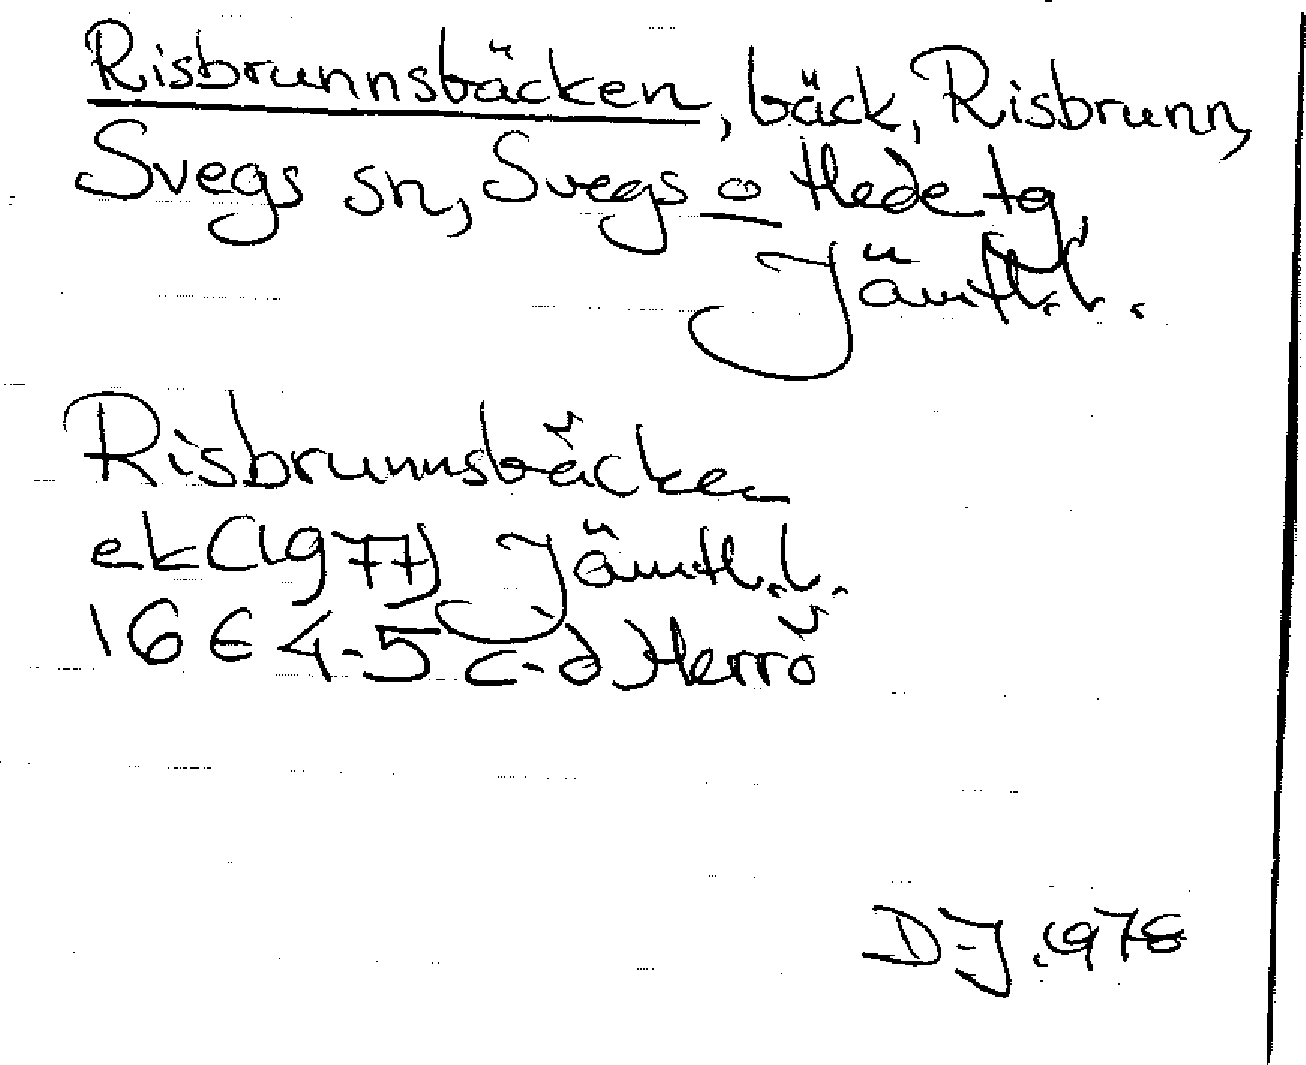 Risbrunnsbäcken, bäck, Risbrunn,
Svegs sn, Svegs o Hede tg,
Jämtl. l.
Risbrunnsbäcken
ek (1977) Jämtl. l.
16 E 4-5 c-d Herrö
DJ 1978